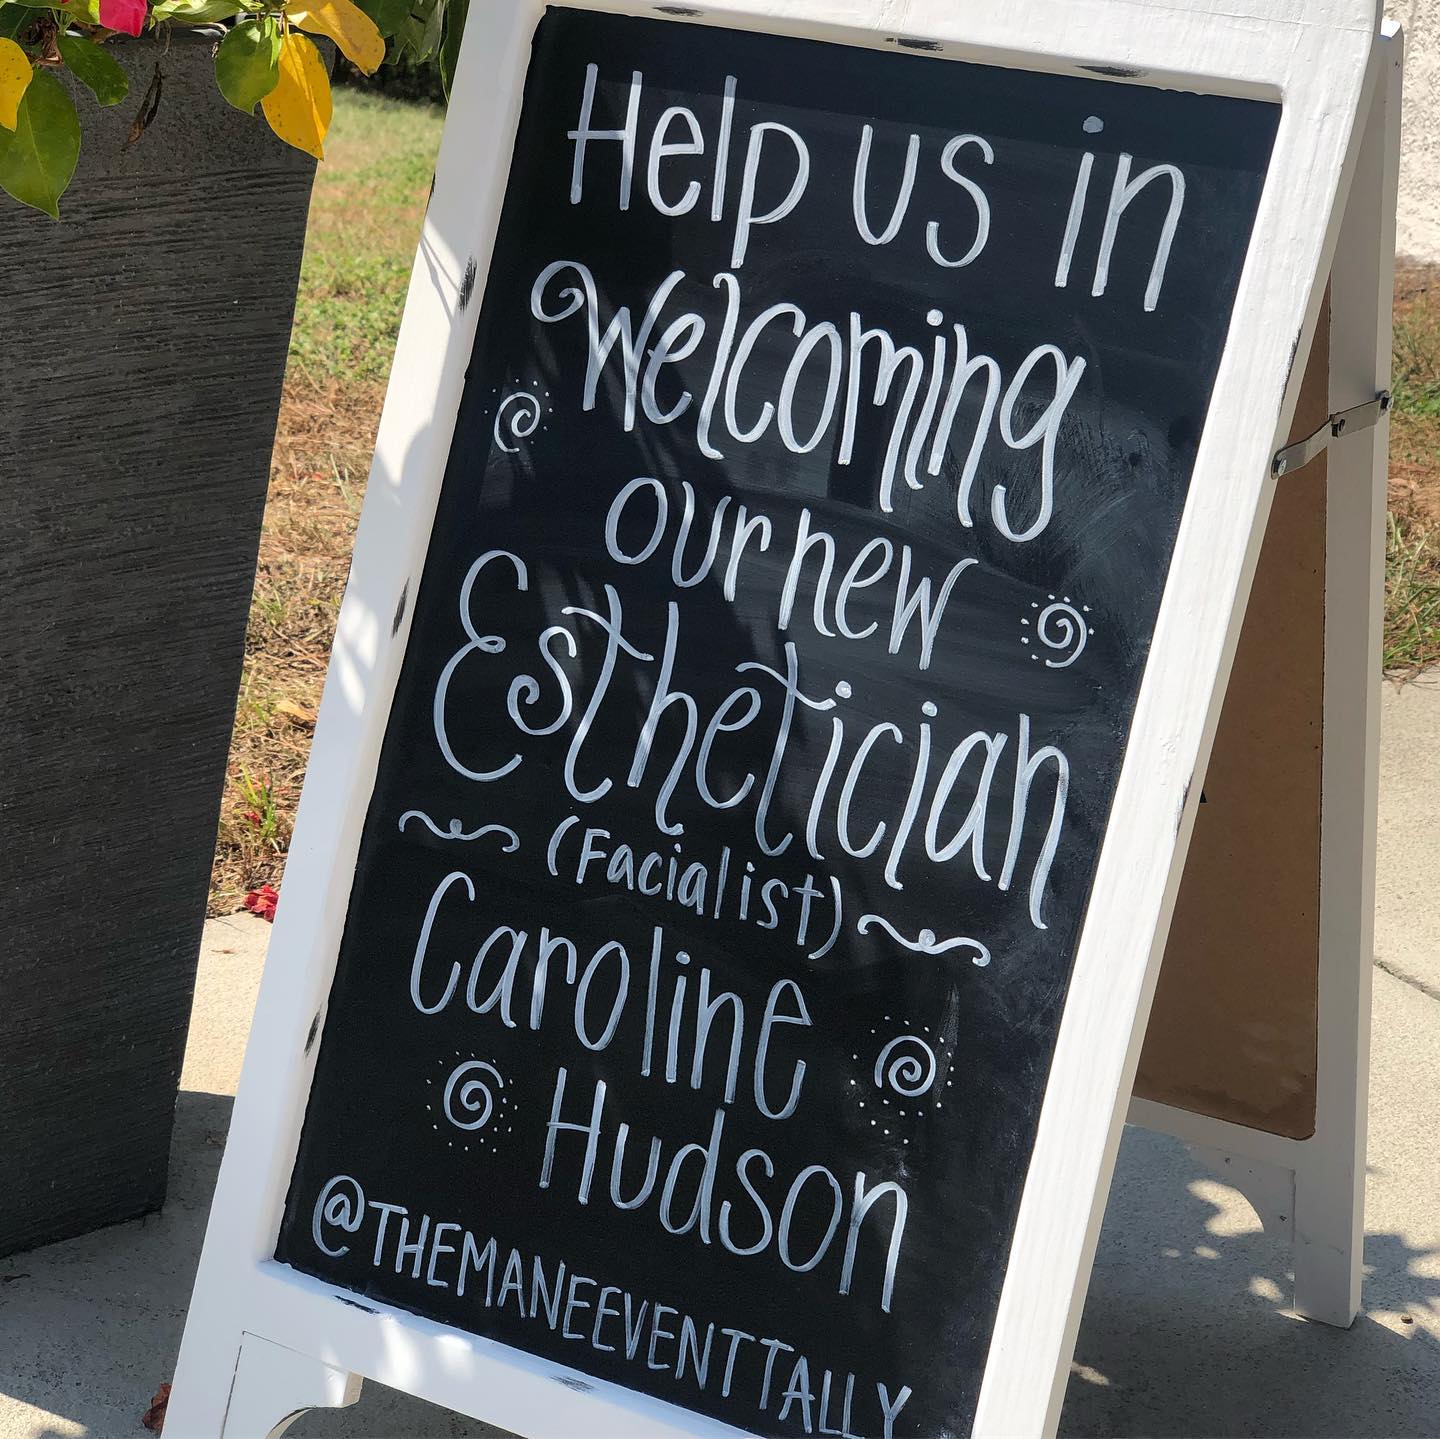 Help us in
Welcoming
our new
Esthetician
(Facialist)
Caroline
Hudson
@THEMANEEVENTTALLY